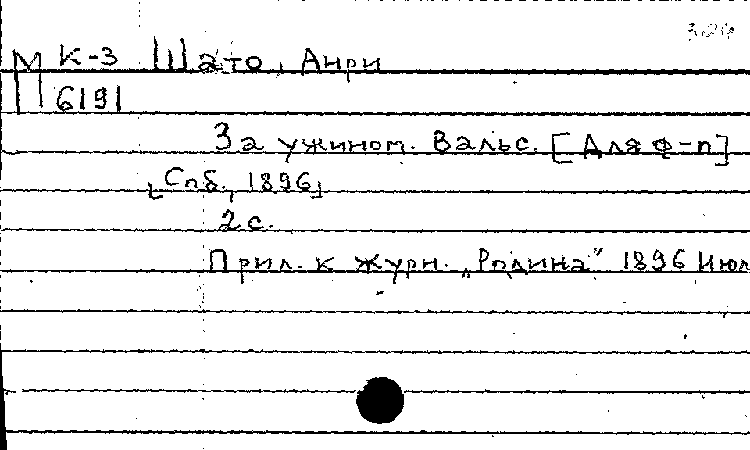 М К-3 Шато, Анри
6191
За ужином. Вальс. [Для ф-п]
[Спб., 1896]
2 с.
Прил. к журн. „Родина" 1896 Июл